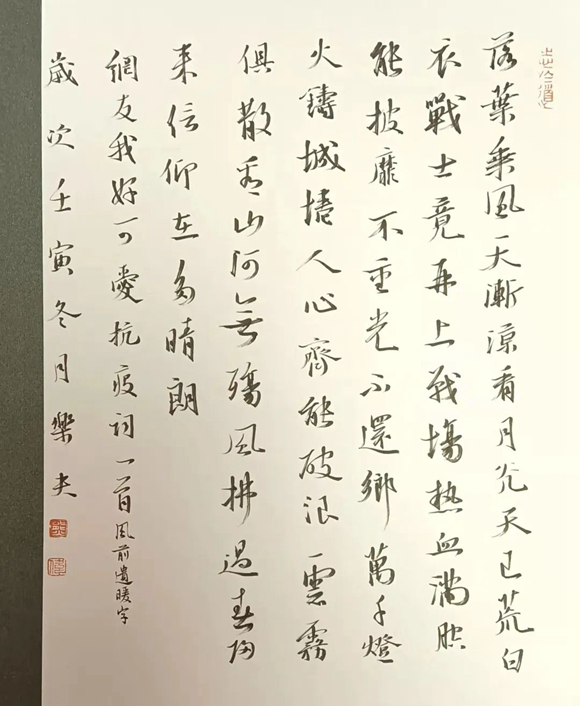 落葉乘風一天漸涼看月光天已荒白
衣戰士竟再上戰場熱血滿腔
能披靡不重光不還鄉萬千燈
火鑄城墻人心齊能破浪雲霧
俱散看山河無殤風拂過春歸
来信仰在多晴朗
網友我好可愛抗疫詞一首風前遺暖字
歲次壬寅冬月樂夫